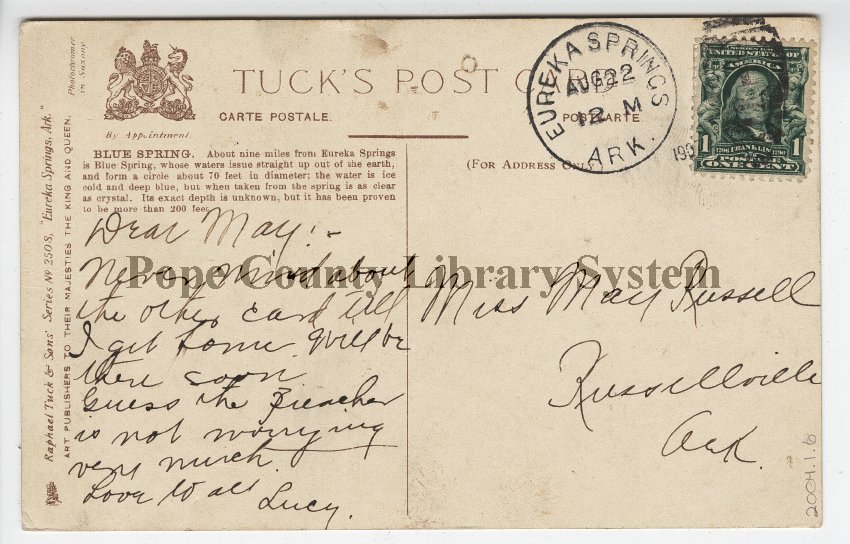 Photochromed
in Saxony
By Appointment.
TUCK'S POST CARD
CARTE POSTALE. POSTKARTE
(FOR ADDRESS ONLY)
BLUE SPRING. About nine miles from Eureka Springs
is Blue Spring, whose waters issue straight up out of the earth,
and form a circle about 70 feet in diameter; the water is ice
cold and deep blue, but when taken from the spring is as clear
as crystal. Its exact depth is unknown, but it has been proven
to be more than 200 feet.
Raphael Tuck & Sons' Series No 2508, "Eureka Springs, Ark."
ART PUBLISHERS TO THEIR MAJESTIES THE KING AND QUEEN.
Dear May:-
Never mind about
the other card till
I get home. Will be
there soon
Guess the Preacher
is not worrying
very much.
Love to all
Lucy.
EUREKA SPRINGS
AUG 22
12 M
ARK.
190
UNITED STATES OF
AMERICA
1706 FRANKLIN 1790
POSTAGE
1 ONE CENT 1
Miss May Russell
Russellville
Ark.
2004.1.6
Pope County Library System